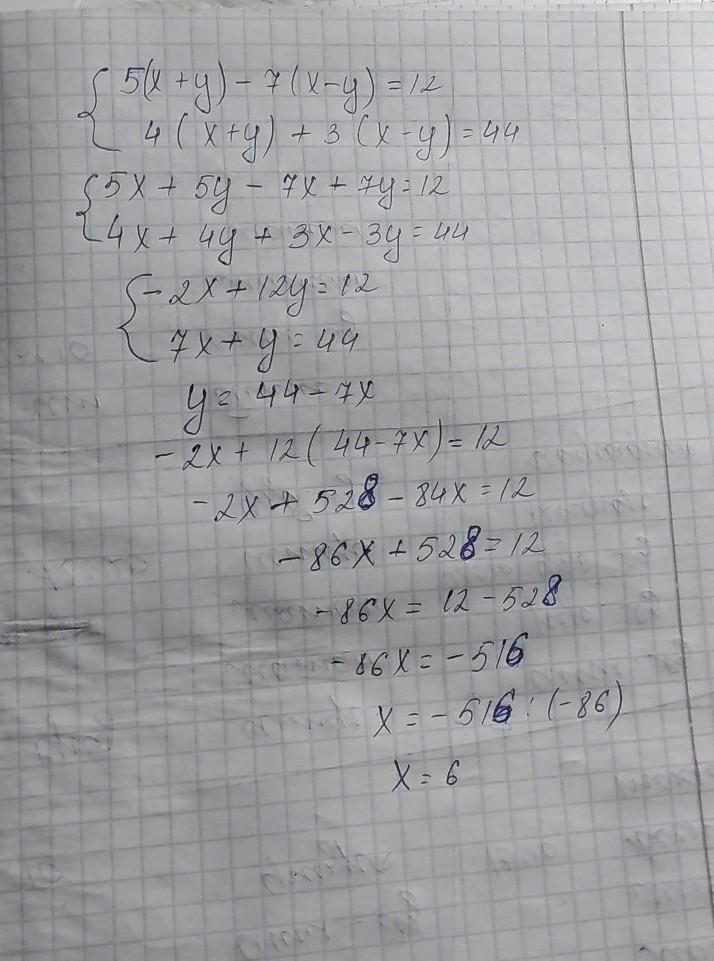 5(x+y) - 7(x-y) = 12
4(x+y) + 3(x-y) = 44
5x + 5y - 7x + 7y = 12
4x + 4y + 3x - 3y = 44
-2x + 12y = 12
7x + y = 44
y = 44 - 7x
-2x + 12(44 - 7x) = 12
-2x + 528 - 84x = 12
-86x + 528 = 12
-86x = 12 - 528
-86x = -516
x = -516 : (-86)
x = 6